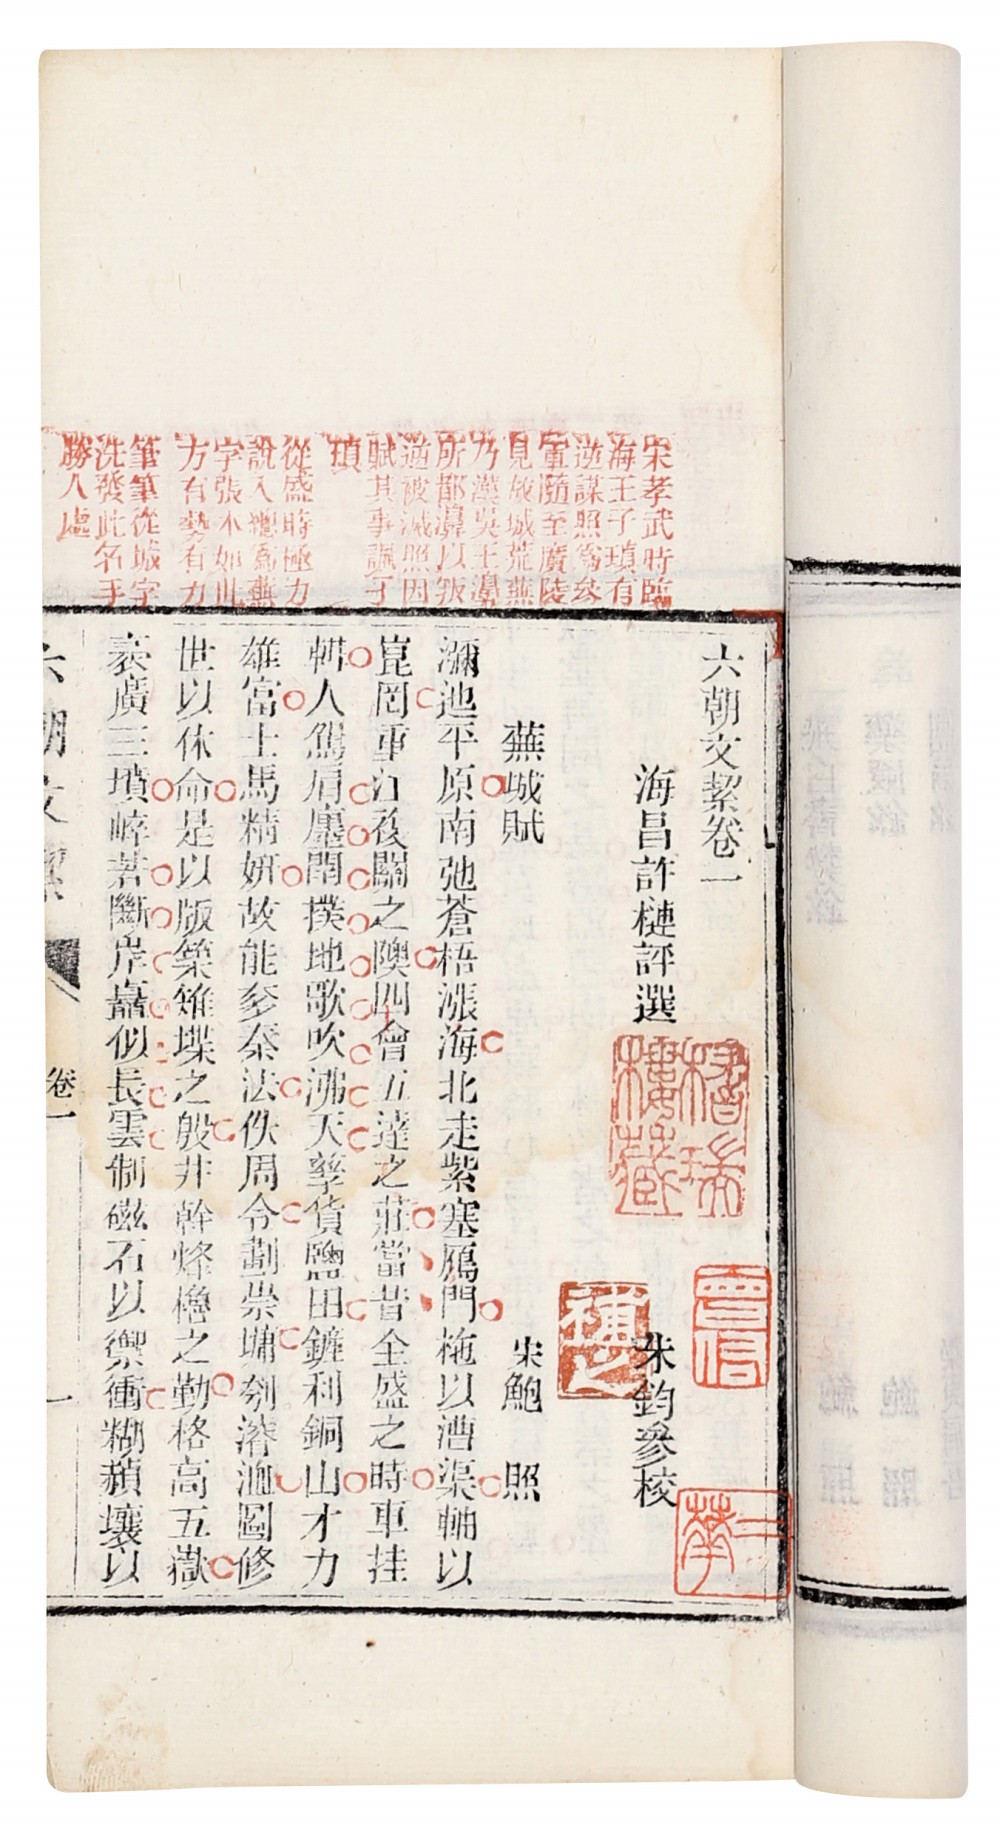 宋孝武時臨
海王子頊有
逆謀照爲參
軍隨至廣陵
見故城荒蕪
乃漢吳王濞
所都濞以叛
逆被滅照因
賦其事諷子
頊
從盛時極力
說入總爲蕪
字張本如此
方有勢有力
筆筆從城字
洗發此名手
勝人處
六朝文絜卷一
海昌許槤評選
朱鈞參校
蕪城賦
宋鮑照
瀰迆平原南弛蒼梧漲海北走紫塞鴈門柂以漕渠軸以
崑罔重江複關之隩四會五達之莊當昔全盛之時車挂
轊人駕肩廛閈撲地歌吹沸天孳貨鹽田鏟利銅山才力
雄富士馬精姸故能奓秦法佚周令劃崇墉刳濬洫圖修
世以休命是以版築雉堞之殷井幹烽櫓之勤格高五嶽
袤廣三墳崪若斷岸矗似長雲制磁石以禦衝糊赬壤以
六朝文絜
卷一
一
稽瑞樓藏